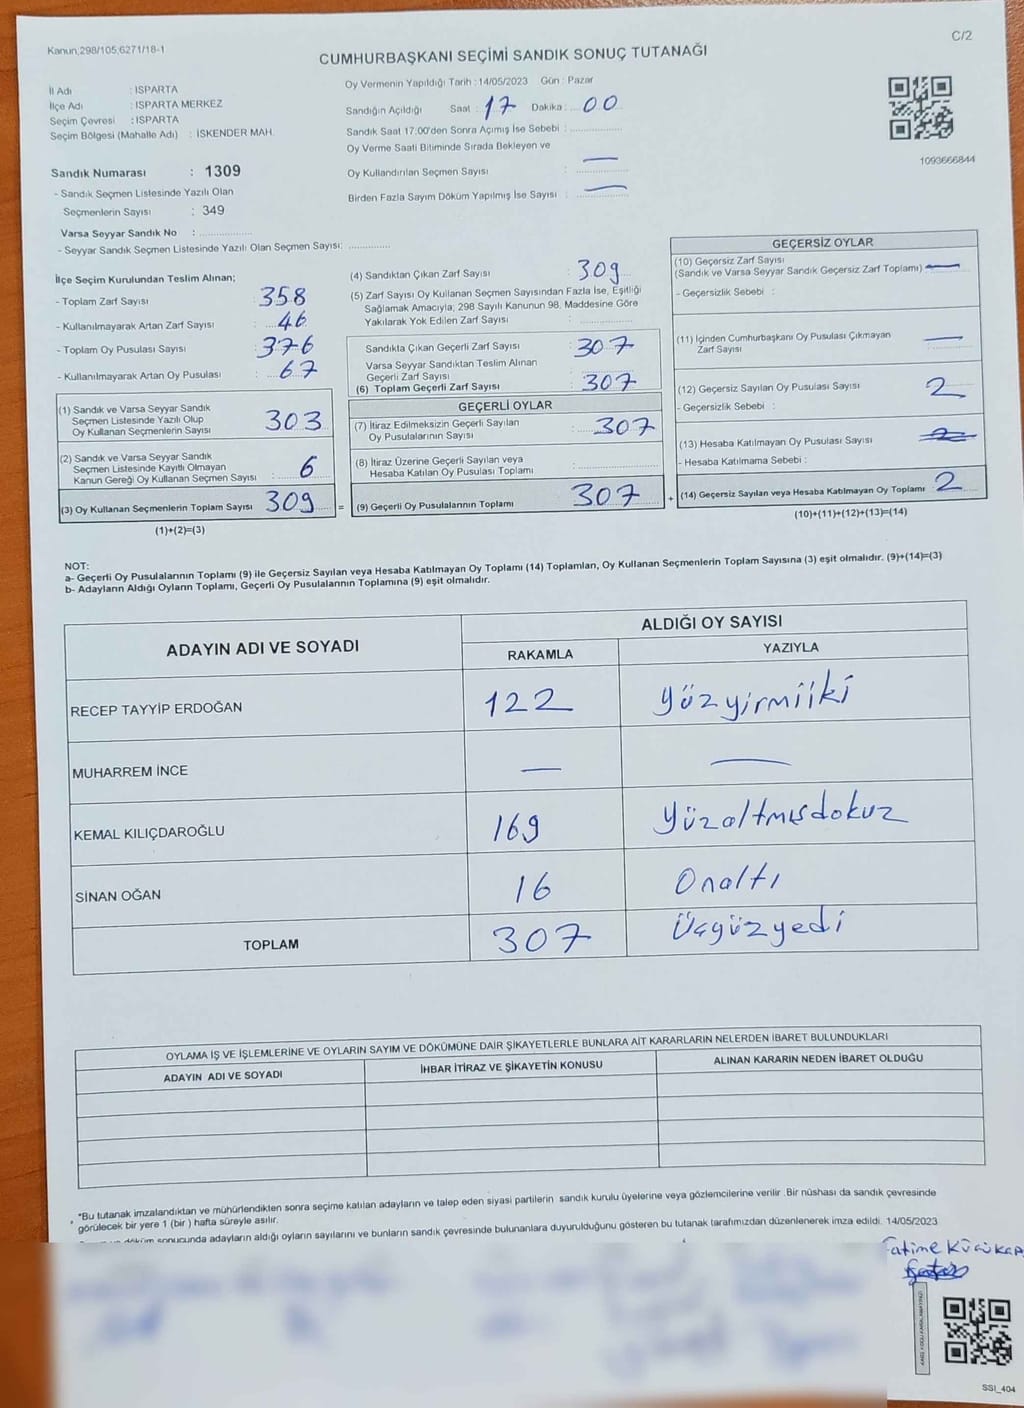 Kanun,298/105,6271/18-1
C/2
CUMHURBAŞKANI SEÇİMİ SANDIK SONUÇ TUTANAĞI
İl Adı : ISPARTA
İlçe Adı : ISPARTA MERKEZ
Seçim Çevresi : ISPARTA
Seçim Bölgesi (Mahalle Adı) : İSKENDER MAH.
Oy Vermenin Yapıldığı Tarih : 14/05/2023 Gün : Pazar
Sandığın Açıldığı Saat : 17 Dakika : 00
Sandık Saat 17:00'den Sonra Açımış İse Sebebi :
Oy Verme Saati Bitiminde Sırada Bekleyen ve
Oy Kullandırılan Seçmen Sayısı : —
Birden Fazla Sayım Döküm Yapılmış İse Sayısı : —
1093666844
Sandık Numarası : 1309
- Sandık Seçmen Listesinde Yazılı Olan
Seçmenlerin Sayısı : 349
Varsa Seyyar Sandık No :
- Seyyar Sandık Seçmen Listesinde Yazılı Olan Seçmen Sayısı:
İlçe Seçim Kurulundan Teslim Alınan;
- Toplam Zarf Sayısı : 358
- Kullanılmayarak Artan Zarf Sayısı : 46
- Toplam Oy Pusulası Sayısı : 376
- Kullanılmayarak Artan Oy Pusulası : 67
(1) Sandık ve Varsa Seyyar Sandık
Seçmen Listesinde Yazılı Olup
Oy Kullanan Seçmenlerin Sayısı : 303
(2) Sandık ve Varsa Seyyar Sandık
Seçmen Listesinde Kayıtlı Olmayan
Kanun Gereği Oy Kullanan Seçmen Sayısı : 6
(3) Oy Kullanan Seçmenlerin Toplam Sayısı 309 =
(1)+(2)=(3)
(4) Sandıktan Çıkan Zarf Sayısı : 309
(5) Zarf Sayısı Oy Kullanan Seçmen Sayısından Fazla İse, Eşitliği
Sağlamak Amacıyla; 298 Sayılı Kanunun 98. Maddesine Göre
Yakılarak Yok Edilen Zarf Sayısı :
Sandıkta Çıkan Geçerli Zarf Sayısı : 307
Varsa Seyyar Sandıktan Teslim Alınan
Geçerli Zarf Sayısı
(6) Toplam Geçerli Zarf Sayısı : 307
GEÇERLİ OYLAR
(7) İtiraz Edilmeksizin Geçerli Sayılan
Oy Pusulalarının Sayısı : 307
(8) İtiraz Üzerine Geçerli Sayılan veya
Hesaba Katılan Oy Pusulası Toplamı :
(9) Geçerli Oy Pusulalarının Toplamı 307 +
GEÇERSİZ OYLAR
(10) Geçersiz Zarf Sayısı
(Sandık ve Varsa Seyyar Sandık Geçersiz Zarf Toplamı) —
- Geçersizlik Sebebi :
(11) İçinden Cumhurbaşkanı Oy Pusulası Çıkmayan
Zarf Sayısı : —
(12) Geçersiz Sayılan Oy Pusulası Sayısı : 2
- Geçersizlik Sebebi :
(13) Hesaba Katılmayan Oy Pusulası Sayısı :
- Hesaba Katılmama Sebebi :
(14) Geçersiz Sayılan veya Hesaba Katılmayan Oy Toplamı 2
(10)+(11)+(12)+(13)=(14)
NOT:
a- Geçerli Oy Pusulalarının Toplamı (9) ile Geçersiz Sayılan veya Hesaba Katılmayan Oy Toplamı (14) Toplamları, Oy Kullanan Seçmenlerin Toplam Sayısına (3) eşit olmalıdır. (9)+(14)=(3)
b- Adayların Aldığı Oyların Toplamı, Geçerli Oy Pusulalarının Toplamına (9) eşit olmalıdır.
ADAYIN ADI VE SOYADI ALDIĞI OY SAYISI
RAKAMLA YAZIYLA
RECEP TAYYİP ERDOĞAN 122 yüzyirmiiki
MUHARREM İNCE — —
KEMAL KILIÇDAROĞLU 169 Yüzaltmışdokuz
SİNAN OĞAN 16 Onaltı
TOPLAM 307 Üçyüzyedi
OYLAMA İŞ VE İŞLEMLERİNE VE OYLARIN SAYIM VE DÖKÜMÜNE DAİR ŞİKAYETLERLE BUNLARA AİT KARARLARIN NELERDEN İBARET BULUNDUKLARI
ADAYIN ADI VE SOYADI İHBAR İTİRAZ VE ŞİKAYETİN KONUSU ALINAN KARARIN NEDEN İBARET OLDUĞU
"Bu tutanak imzalandıktan ve mühürlendikten sonra seçime katılan adayların ve talep eden siyasi partilerin sandık kurulu üyelerine veya gözlemcilerine verilir .Bir nüshası da sandık çevresinde
görülecek bir yere 1 (bir ) hafta süreyle asılır.
döküm sonucunda adayların aldığı oyların sayılarını ve bunların sandık çevresinde bulunanlara duyurulduğunu gösteren bu tutanak tarafımızdan düzenlenerek imza edildi. 14/05/2023
SSI_404